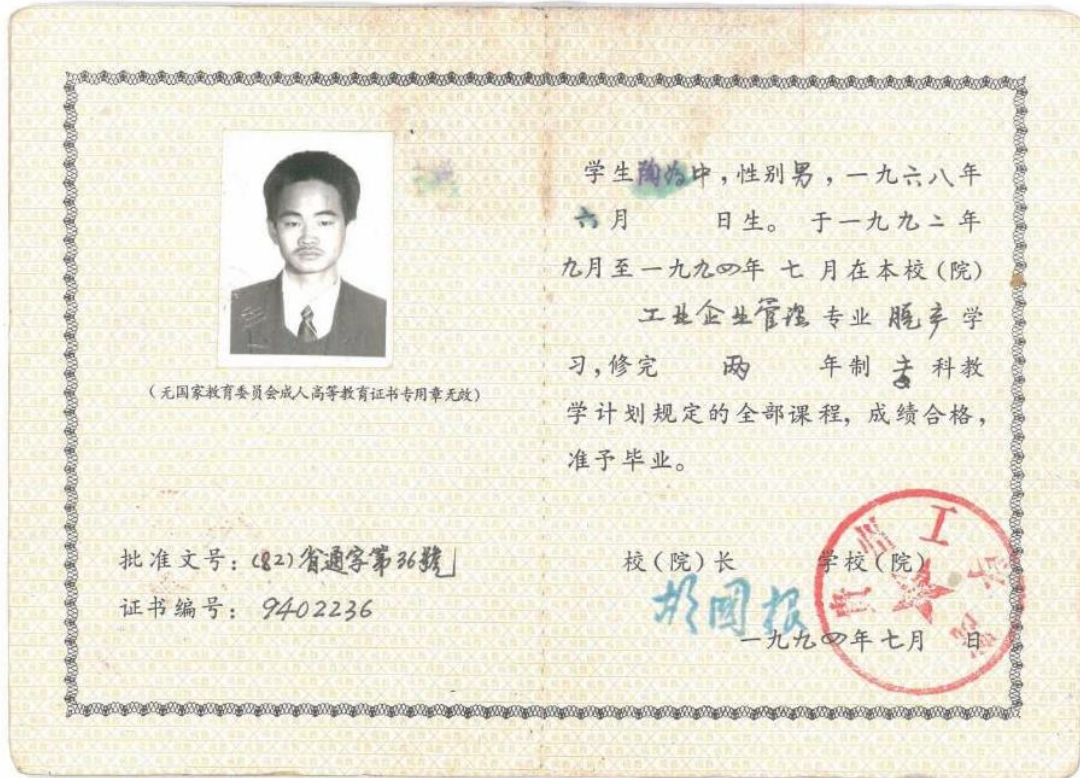 (无国家教育委员会成人高等教育证书专用章无效)
批准文号：(82)省通字第36號
证书编号：9402236
学生陶为中，性别男，一九六八年
六月 日生。于一九九二年
九月至一九九四年 七 月在本校(院)
工业企业管理 专业 脱产 学
习，修完 两 年制 专 科教
学计划规定的全部课程，成绩合格，
准予毕业。
校(院)长 学校(院)
一九九四年七月 日
工学院